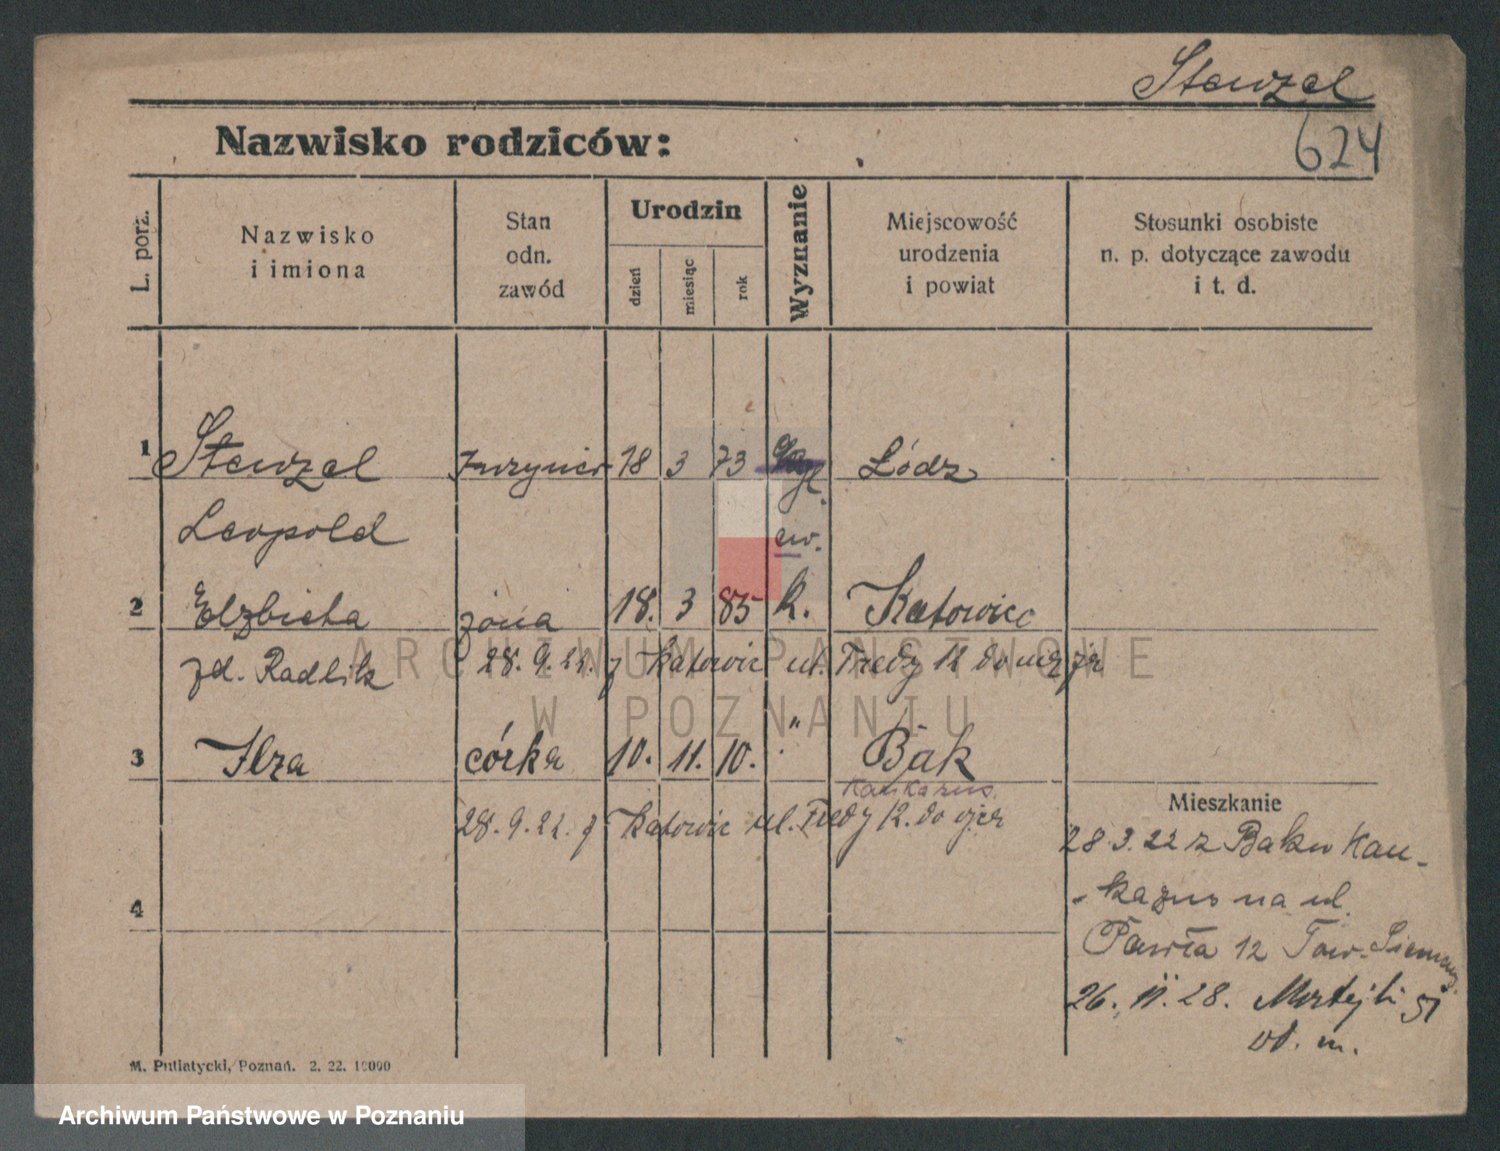 Stenzel
624
Nazwisko rodziców:
L. porz.
Nazwisko
i imiona
Stan
odn.
zawód
Urodzin
dzień
miesiąc
rok
Wyznanie
Miejscowość
urodzenia
i powiat
Stosunki osobiste
n. p. dotyczące zawodu
i t. d.
1 Stenzel Inżynier 18 3 73 Łódz
Leopold ew.
2 Elzbieta żona 18. 3 85 k. Katowice
zd. Radlik 28. 9. 22. z Katowic ul. Fredy 12 do męża
3 Ilza córka 10. 11. 10. " Bak
Kaukazus.
28. 9. 22. z Katowic ul. Fredy 12. do ojca
Mieszkanie
28. 3. 22 z Baku Kau-
-kazus na ul.
4
Pawła 12 Tow. Siemens
26. 11. 28. Matejki 51
M. Putiatycki, Poznań. 2. 22. 10000
ARCHIWUM PAŃSTWOWE
W POZNANIU
Archiwum Państwowe w Poznaniu